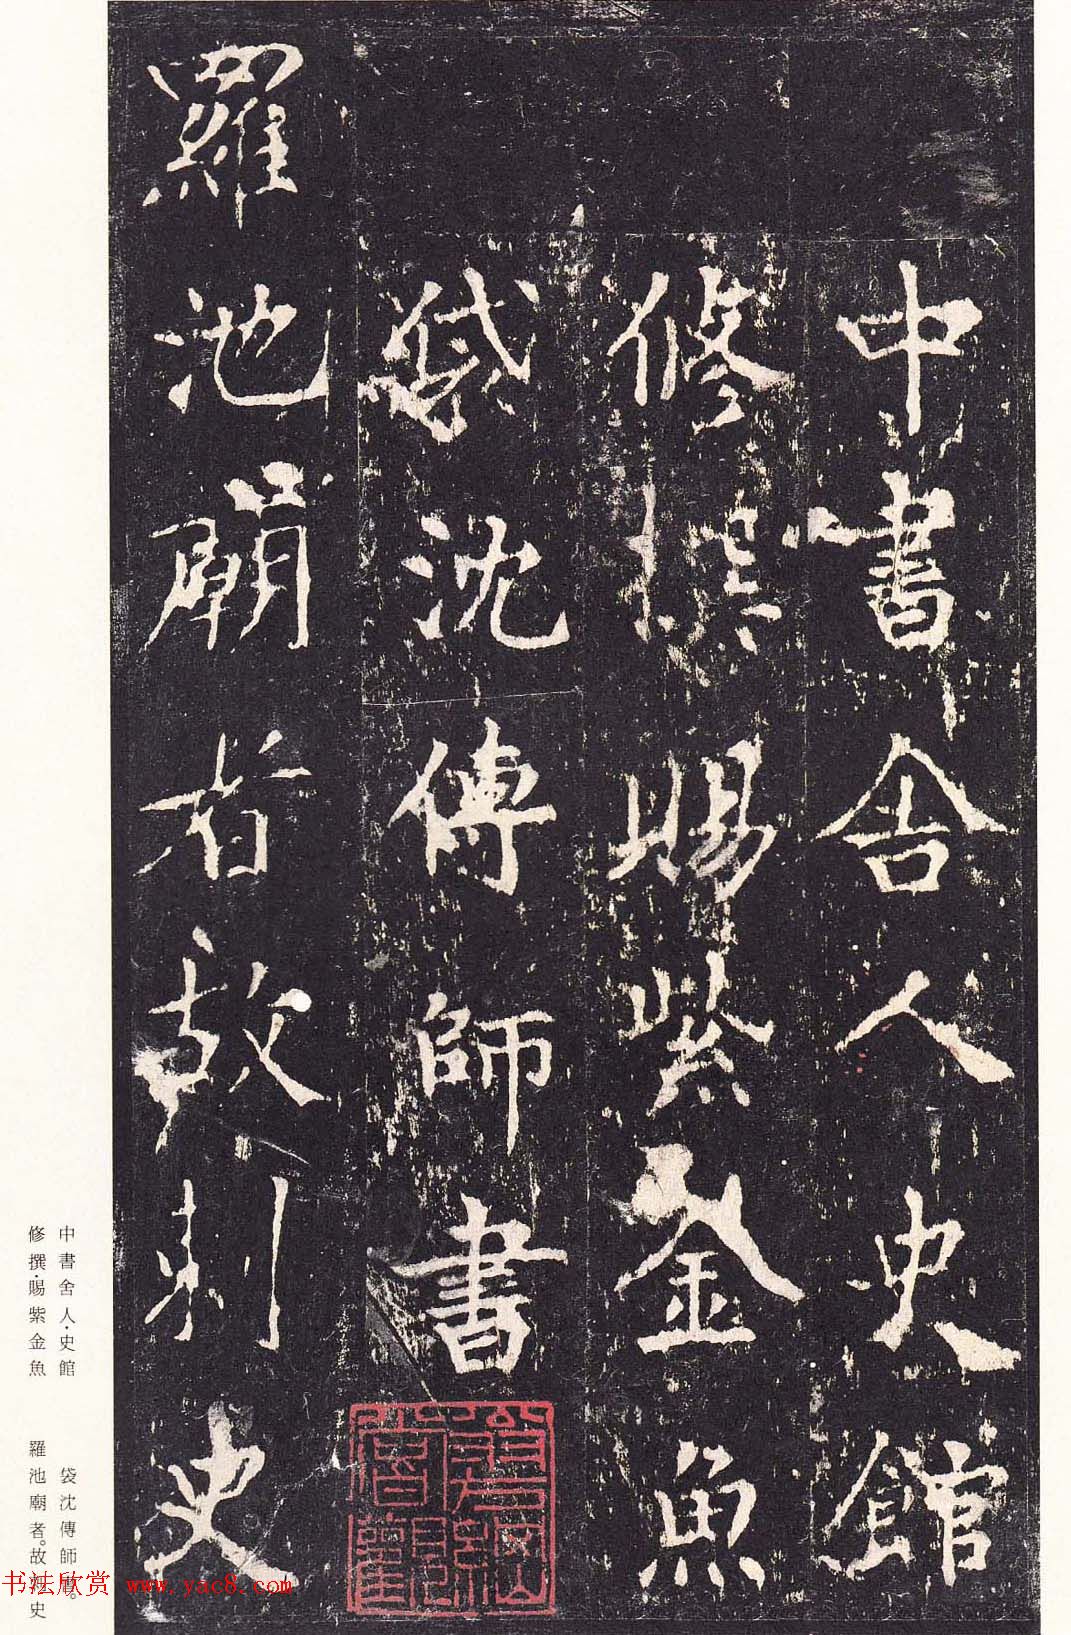 中書舍人史館
修撰賜紫金魚
袋沈傳師書
羅池廟者故刺史
中書舍人·史館
修撰·賜紫金魚
袋沈傳師書。
羅池廟者。故刺史
书法欣赏 www.yac8.com